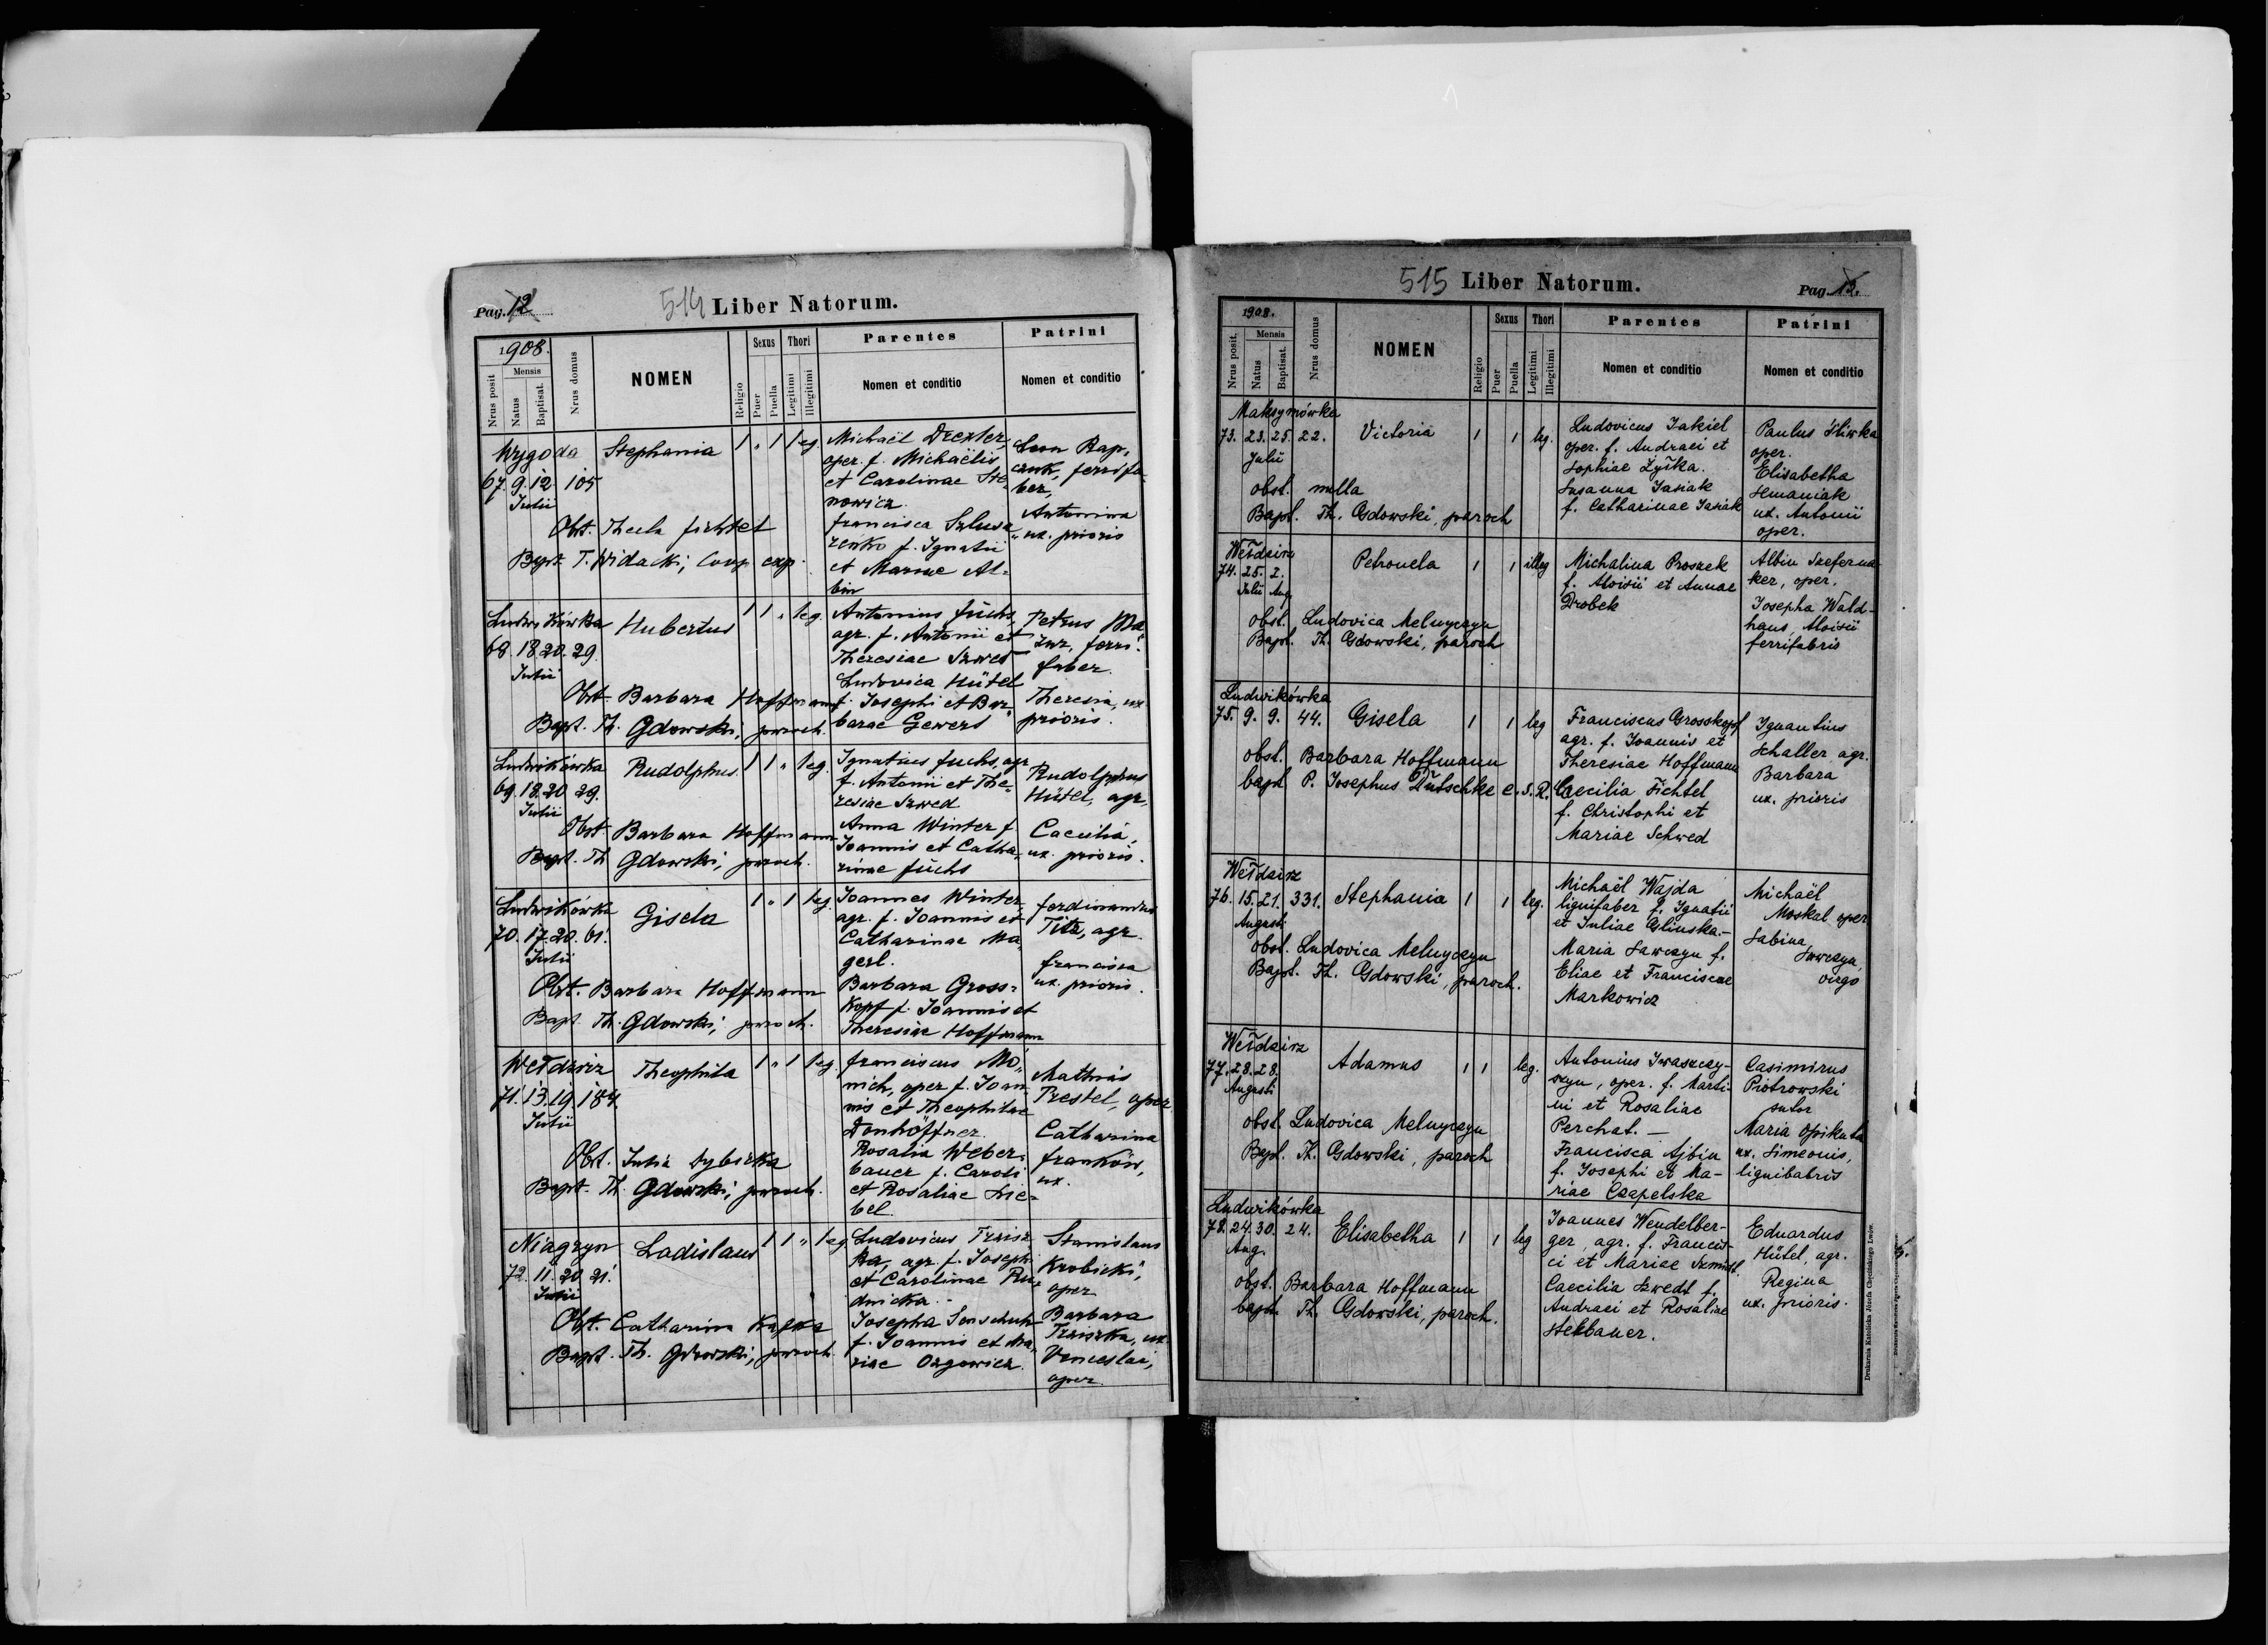 Pag. 12
514 Liber Natorum.
1908.
Nrus posit
Mensis
Natus
Baptisat.
Nrus domus
NOMEN
Religio
Sexus
Puer
Puella
Thori
Legitimi
Illegitimi
Parentes
Nomen et conditio
Patrini
Nomen et conditio
Wygoda
67. 9. 12. 105
Julii
Stephania
1 " 1 leg.
Obst. Thecla Fichtel
Bapt. T. Widacki, coop. exp.
Michaël Drexler,
oper. f. Michaëlis
et Carolinae Ste-
nowicz.
Francisca Szlusa
renko f. Ignatii
et Mariae Al-
bin
Leon Rap,
czuk, ferrifa-
ber,
Antonina
ux. prioris
Ludwikówka
68. 18. 20. 29.
Julii
Hubertus
1 1 " leg.
Obst. Barbara Hoffmann
Bapt. Th. Gdowski, paroch.
Antonius Fuchs,
agr. f. Antonii et
Theresiae Szwed
Ludovica Hütel
f. Josephi et Bar-
barae Gewerd
Petrus Ma-
zur, ferri-
faber.
Theresia, ux.
prioris.
Ludwikówka
69. 18. 20. 29.
Julii
Rudolphus.
1 1 " leg.
Obst. Barbara Hoffmann
Bapt. Th. Gdowski, paroch.
Ignatius Fuchs, agr.
f. Antonii et The-
resiae Szwed
Anna Winter f.
Joannis et Catha-
rinae Fuchs
Rudolphus
Hütel, agr.
Caecilia,
ux. prioris.
Ludwikówka
70. 17. 20. 61.
Julii
Gisela
1 " 1 leg.
Obst. Barbara Hoffmann
Bapt. Th. Gdowski, paroch.
Joannes Winter,
agr. f. Joannis et
Catharinae Ma-
gerl.
Barbara Gross-
kopf f. Joannis et
Theresiae Hoffmann
Ferdinandus
Titz, agr.
Francisca
ux. prioris.
Wełdzirz
71. 13. 19. 184.
Julii
Theophila
1 " 1 leg.
Obst. Julia Sybirka
Bapt. Th. Gdowski, paroch.
Franciscus Mö-
nich, oper. f. Joan-
nis et Theophilae
Donhöffner.
Rosalia Weber-
bauer f. Caroli
et Rosaliae Lie-
bel.
Mathias
Trestel, oper
Catharina
Franków,
ux.
Niagryn
72. 11. 20. 21.
Julii
Ladislaus
1 1 " leg.
Obst. Catharina Kafka
Bapt. Th. Gdowski, paroch.
Ludovicus Trzisz
ka, agr. f. Joseph
et Carolinae Ru-
dnicka.
Josepha Sonschuh
f. Joannis et Ma-
riae Ozgowicz.
Stanislaus
Krobicki,
oper
Barbara
Trziszka, ux.
Venceslai,
oper.
515 Liber Natorum.
Pag. 13.
1908.
Nrus posit.
Mensis
Natus
Baptisat.
Nrus domus
NOMEN
Religio
Sexus
Puer
Puella
Thori
Legitimi
Illegitimi
Parentes
Nomen et conditio
Patrini
Nomen et conditio
Maksymówka
73. 23. 25. 22.
Julii
Victoria
1 1 leg.
obst. nulla
Bapt. Th. Gdowski, paroch
Ludovicus Jakiel
oper. f. Andraei et
Sophiae Zyśka.
Susanna Jasiak
f. Catharinae Jasiak
Paulus Śliwka
oper.
Elisabetha
Semaniak
ux. Antonii
oper.
Wełdzirz
74. 25. 2.
Julii Aug
Petronela
1 1 illeg
obst. Ludovica Melnyczyn
Bapt. Th. Gdowski, paroch
Michalina Proszek
f. Aloisii et Annae
Drobek
Albin Szeferna
ker, oper.
Josepha Wald-
haus Aloisii
ferrifabris
Ludwikówka
75. 9. 9. 44.
Gisela
1 1 leg
obst. Barbara Hoffmann
bapt P. Josephus Dutschke e. S. R.
Franciscus Grosskopf
agr. f. Joannis et
Theresiae Hoffmann
Caecilia Fichtel
f. Christophi et
Mariae Schwed
Ignantius
Schaller agr.
Barbara
ux. prioris
Wełdzirz
76. 15. 21. 331.
Augusti
Stephania
1 1 leg.
obst. Ludovica Melnyczyn
Bapt. Th. Gdowski, paroch.
Michaël Wajda
lignifaber f. Ignatii
et Juliae Glinska.-
Maria Sawczyn f.
Eliae et Franciscae
Markowicz
Michaël
Moskal oper
Sabina
Sawczyn
virgo
Wełdzirz
77. 28. 28.
Augusti
Adamus
1 1 leg.
obst. Ludovica Melnyczyn
Bapt. Th. Gdowski, paroch
Antonius Iwaszczy-
szyn, oper. f. Marti-
ni et Rosaliae
Perchat. -
Francisca Ajbin
f. Josephi et Ma-
riae Czapelska
Casimirus
Piotrowski
sutor
Maria Opikuta
ux. Simeonis,
lignibabris
Ludwikówka
78. 24. 30. 24.
Aug.
Elisabetha
1 1 leg
obst. Barbara Hoffmann
bapt. Th. Gdowski, paroch.
Joannes Wendelber-
ger, agr. f. Francis-
ci et Mariae Szmidt.
Caecilia Szwedt f.
Andraei et Rosaliae
Stekbauer.
Eduardus
Hütel, agr.
Regina
ux. prioris.
Drukarnia Katolicka Józefa Chęcińskiego Lwów.